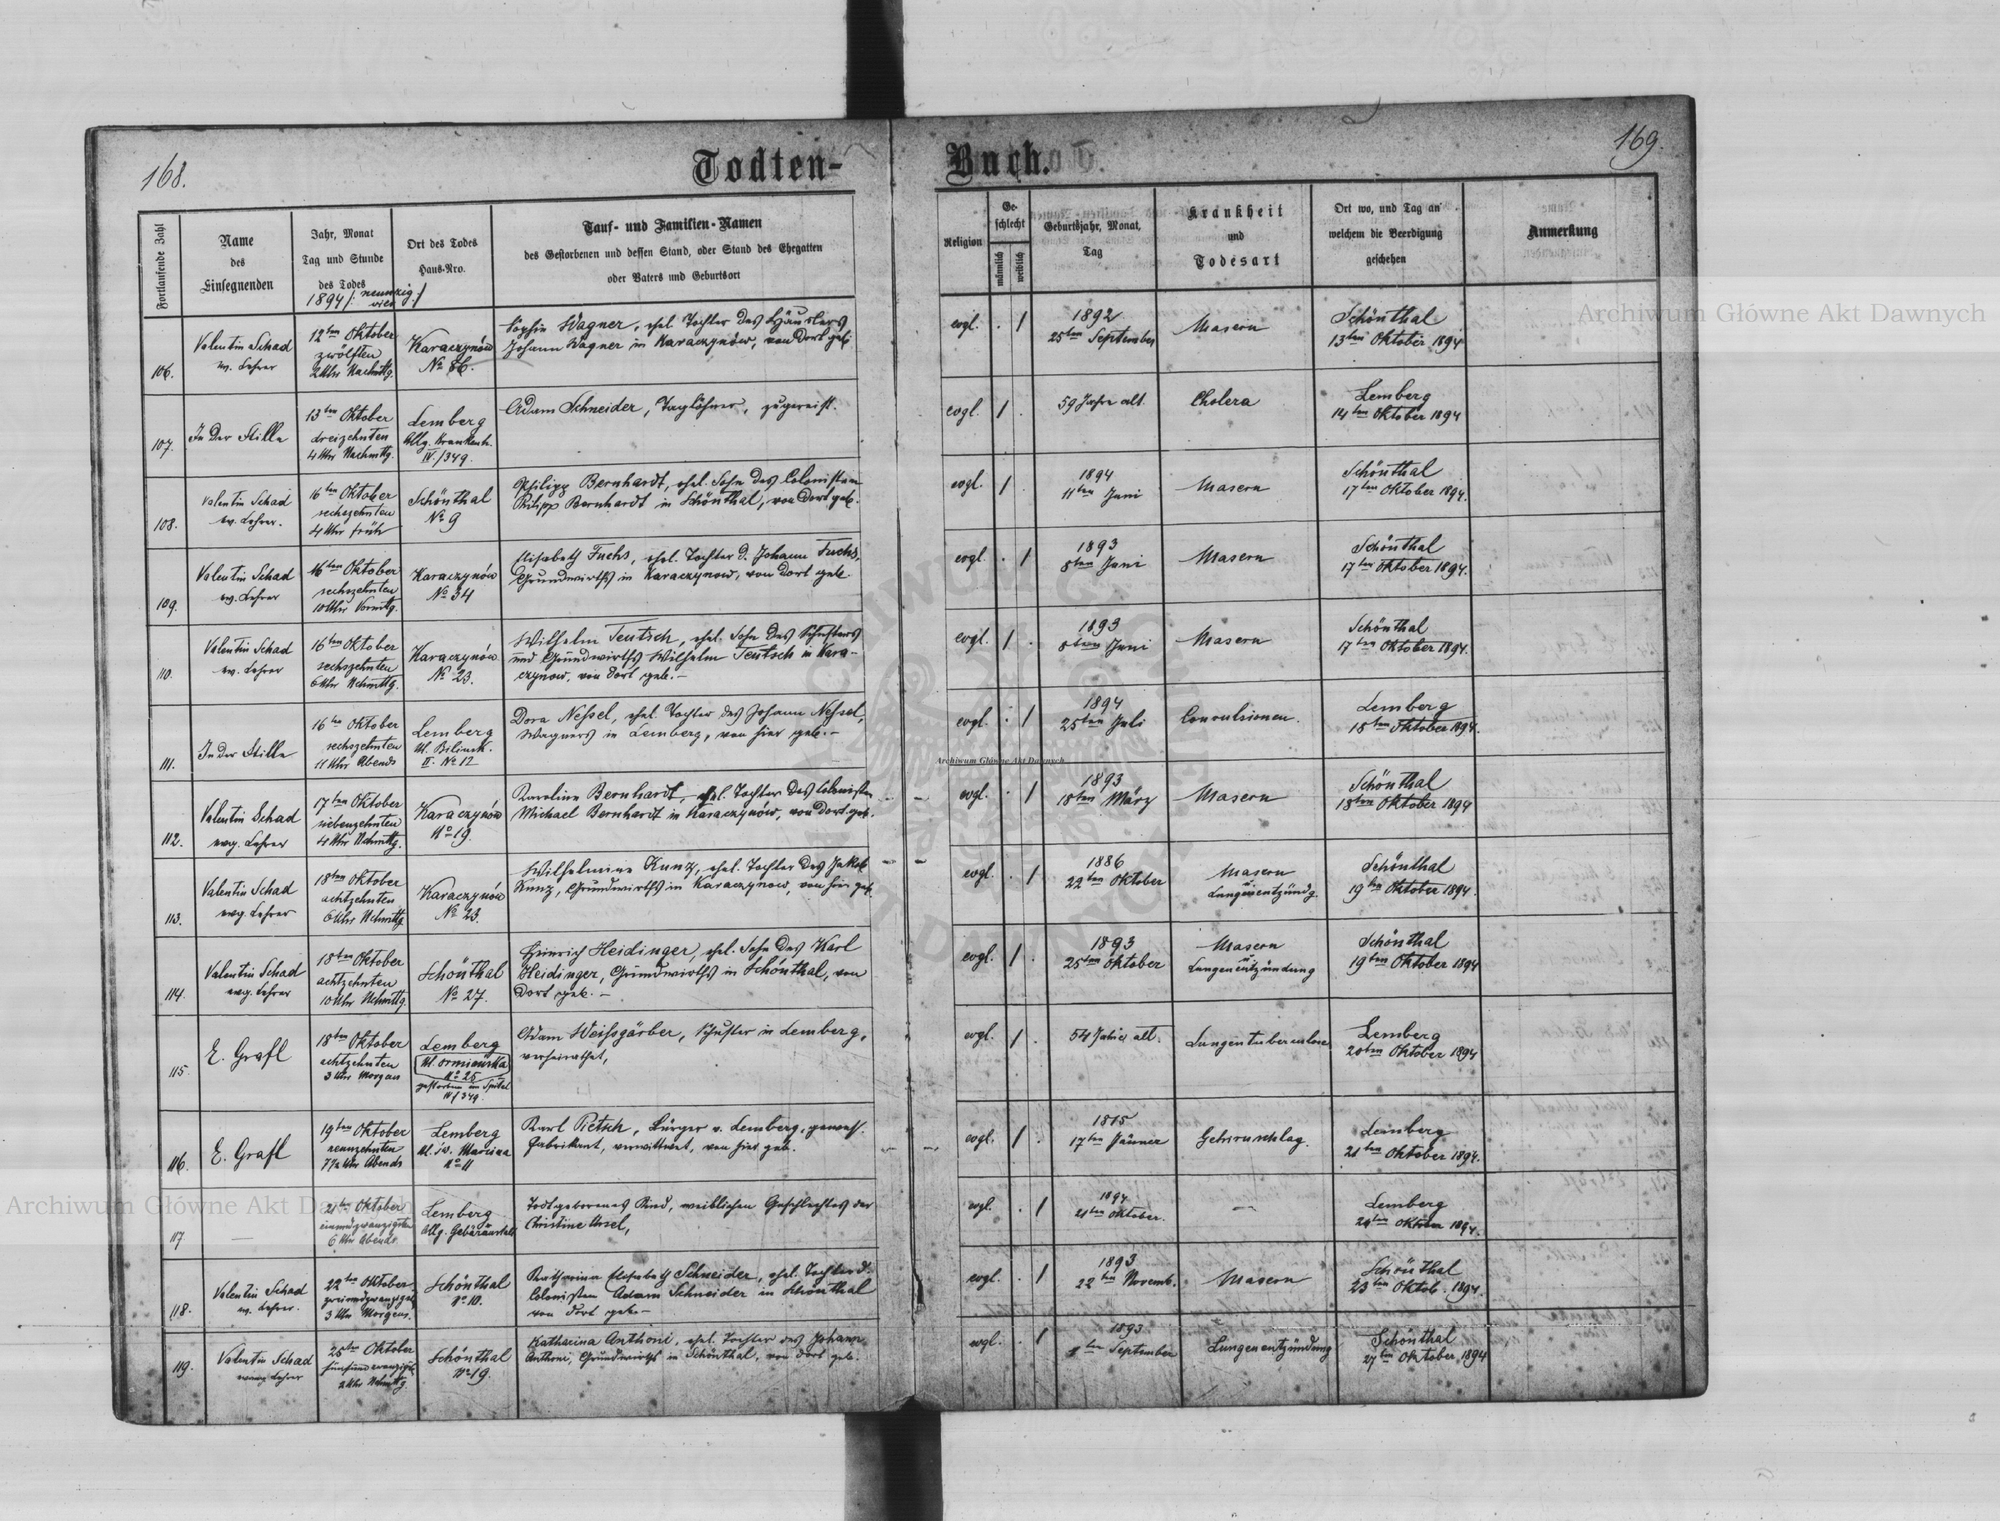 168.
Todten-
Buch.
169.
Fortlaufende Zahl
Name
des
Einsegnenden
Jahr, Monat
Tag und Stunde
des Todes
1894 /: neunzig
vier :/
Ort des Todes
Haus-Nro.
Tauf- und Familien-Namen
des Gestorbenen und dessen Stand, oder Stand des Ehegatten
oder Vaters und Geburtsort
Religion
Ge-
schlecht
männlich
weiblich
Geburtsjahr, Monat,
Tag
Krankheit
und
Todesart
Ort wo, und Tag an
welchem die Beerdigung
geschehen
Anmerkung
106.
Valentin Schad
ev. Lehrer
12ten Oktober
zwölften
2 Uhr Nachmttg.
Karaczynów
No 86.
Sophie Wagner, ehel. Tochter des Häuslers
Johann Wagner in Karaczynów, von dort geb.
evgl.
. /
1892
25ten September
Masern
Schönthal
13ten Oktober 1894
107.
In der Stille
13ten Oktober
dreizehnten
4 Uhr Nachmttg.
Lemberg
Allg. Krankenh.
IV./349.
Adam Schneider, Taglöhner, zugereist.
evgl.
/ .
59 Jahre alt.
Cholera
Lemberg
14ten Oktober 1894
108.
Valentin Schad
ev. Lehrer.
16ten Oktober
sechszehnten
4 Uhr früh
Schönthal
No 9
Philipp Bernhardt, ehel. Sohn des Colonisten
Philipp Bernhardt in Schönthal, von dort geb.
evgl.
/ .
1894
11ten Juni
Masern
Schönthal
17ten Oktober 1894.
109.
Valentin Schad
ev. Lehrer
16ten Oktober
sechszehnten
10 Uhr Vormttg.
Karaczynów
No 34
Elisabeth Fuchs, ehel. Tochter d. Johann Fuchs,
Grundwirths in Karaczynow, von dort geb.
evgl.
. /
1893
8ten Juni
Masern
Schönthal
17ten Oktober 1894.
110.
Valentin Schad
ev. Lehrer
16ten Oktober
sechszehnten
6 Uhr Nchmttg.
Karaczynów
No 23.
Wilhelm Teutsch, ehel. Sohn des Schusters
und Grundwirths Wilhelm Teutsch in Kara-
czynow, von dort geb.-
evgl.
/ .
1893
8ten Juni
Masern
Schönthal
17ten Oktober 1894.
111.
In der Stille
16ten Oktober
sechszehnten
11 Uhr Abends
Lemberg
Ul. Bilinsk.
II. No 12
Dora Nessel, ehel. Tochter des Johann Nessel,
Wagners in Lemberg, von hier geb.-
evgl.
. /
1894
25ten Juli
Convulsionen.
Lemberg
18ten Oktober 1894.
112.
Valentin Schad
evg. Lehrer
17ten Oktober
siebenzehnten
4 Uhr Nchmttg.
Karaczynów
No 19.
Karoline Bernhardt, ehel. Tochter des Colonisten
Michael Bernhardt in Karaczynów, von dort geb.
evgl.
. /
1893
18ten März
Masern
Schönthal
18ten Oktober 1894
113.
Valentin Schad
evg. Lehrer
18ten Oktober
achtzehnten
6 Uhr Nchmttg
Karaczynów
No 23.
Wilhelmine Kunz, ehel. Tochter des Jakob
Kunz, Grundwirths in Karaczynow, von hier geb.
evgl.
. /
1886
22ten Oktober
Masern
u.
Lungenentzündg.
Schönthal
19ten Oktober 1894.
114.
Valentin Schad
evg. Lehrer
18ten Oktober
achtzehnten
10 Uhr Nchmttg
Schönthal
No 27.
Heinrich Heidinger, ehel. Sohn des Karl
Heidinger, Grundwirths in Schönthal, von
dort geb.-
evgl.
/ .
1893
25ten Oktober
Masern
u.
Lungenentzündung
Schönthal
19ten Oktober 1894
115.
E. Grafl
18ten Oktober
achtzehnten
3 Uhr Morgens
Lemberg
Ul. Ormiańska
No 25
gestorben im Spital
IV/349.
Adam Weissgärber, Schuster in Lemberg,
verheirathet,
evgl.
/ .
54 Jahre alt.
Lungentuberculose
Lemberg
20ten Oktober 1894
116.
E. Grafl
19ten Oktober
neunzehnten
7½ Uhr Abends
Lemberg
Ul. św. Marcina
No 11
Karl Pietsch, Bürger v. Lemberg, gewes.
Fabrikant, verwittwet, von hier geb.
evgl.
/ .
1815
17ten Jänner
Gehirnschlag.
Lemberg
21ten Oktober 1894.
117
—
21ten Oktober
einundzwanzigsten
6 Uhr Abends.
Lemberg
Allg. Gebäranstalt
Todtgeborenes Kind, weiblichen Geschlechtes der
Christine Ursel,
evgl.
. /
1894
21ten Oktober.
—
Lemberg
24ten Oktober 1894.
118.
Valentin Schad
ev. Lehrer.
22ten Oktober
zweiundzwanzigsten
3 Uhr Morgens.
Schönthal
No 10.
Katharina Elisabeth Schneider, ehel. Tochter d.
Colonisten Adam Schneider in Schönthal
von dort geb.-
evgl.
. /
1893
22ten Novemb.
Masern
Schönthal
23ten Oktob. 1894.
119.
Valentin Schad
evang Lehrer
25ten Oktober
fünfundzwanzigst.
2 Uhr Nchmttg
Schönthal
No 19.
Katharina Anthoni, ehel. Tochter des Johann
Anthoni, Grundwirths in Schönthal, von dort geb.
evgl.
. /
1893
ten September
Lungenentzündung
Schönthal
27ten Oktober 1894
Archiwum Główne Akt Dawnych
Archiwum Główne Akt Dawnych
Archiwum Główne Akt Dawnych